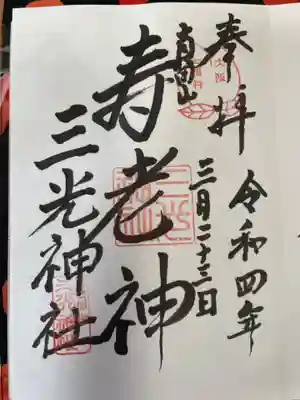 奉拝
令和四年
三月二十三日
真田山
寿老神
三光神社